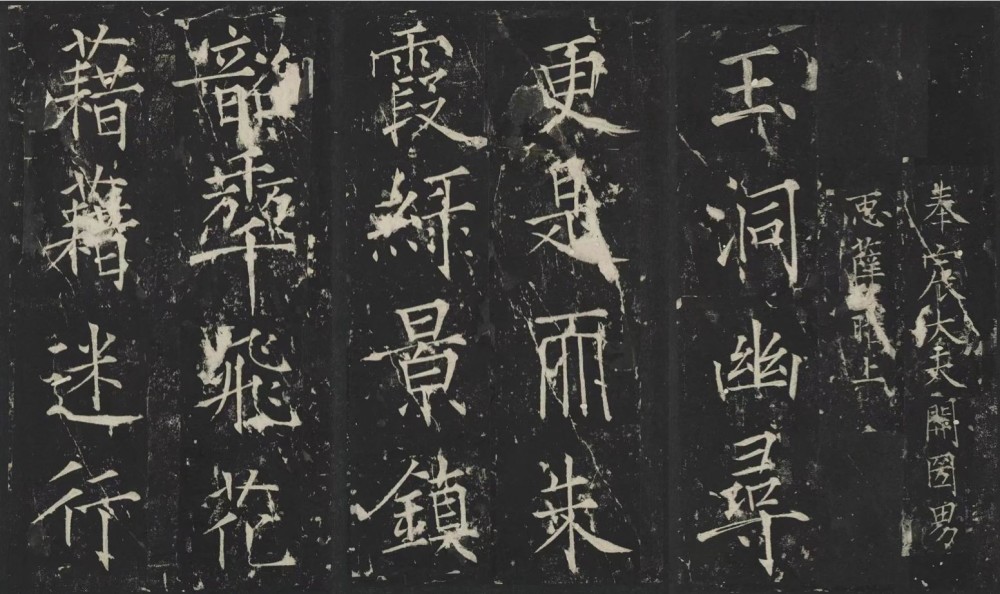 奉宸大夫開圀男
𢘑薛曜上
玉洞幽尋
更是𠀑朱
霞綠景鎮
韶𠡦飛花
藉藉迷行